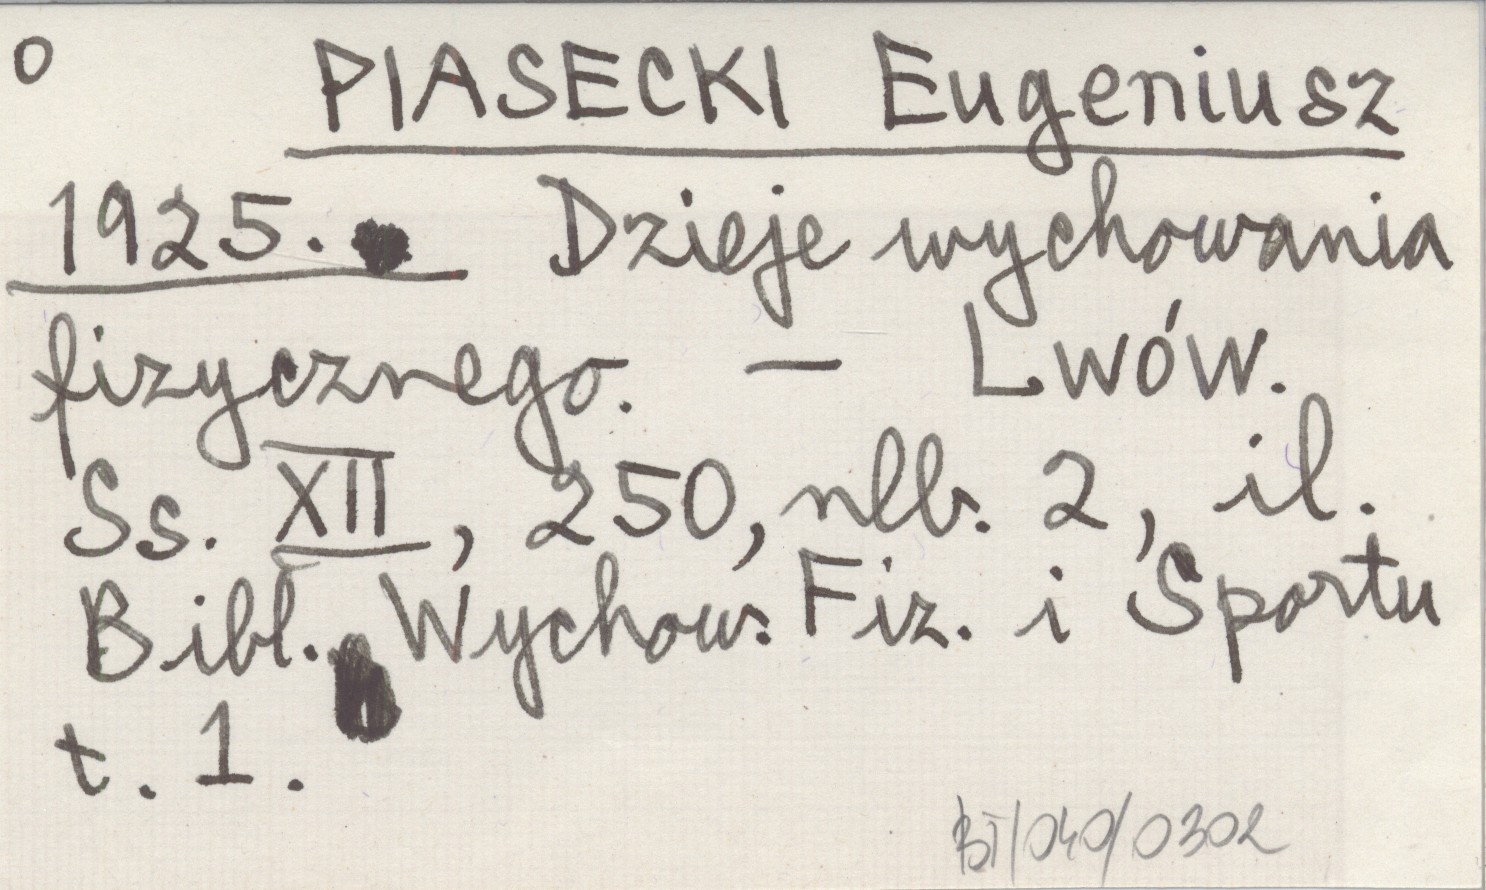 o PIASECKI Eugeniusz
1925. Dzieje wychowania
fizycznego. — Lwów.
Ss. XII, 250, nlb. 2, il.
Bibl. Wychow. Fiz. i Sportu
t. 1.
BT/040/0302